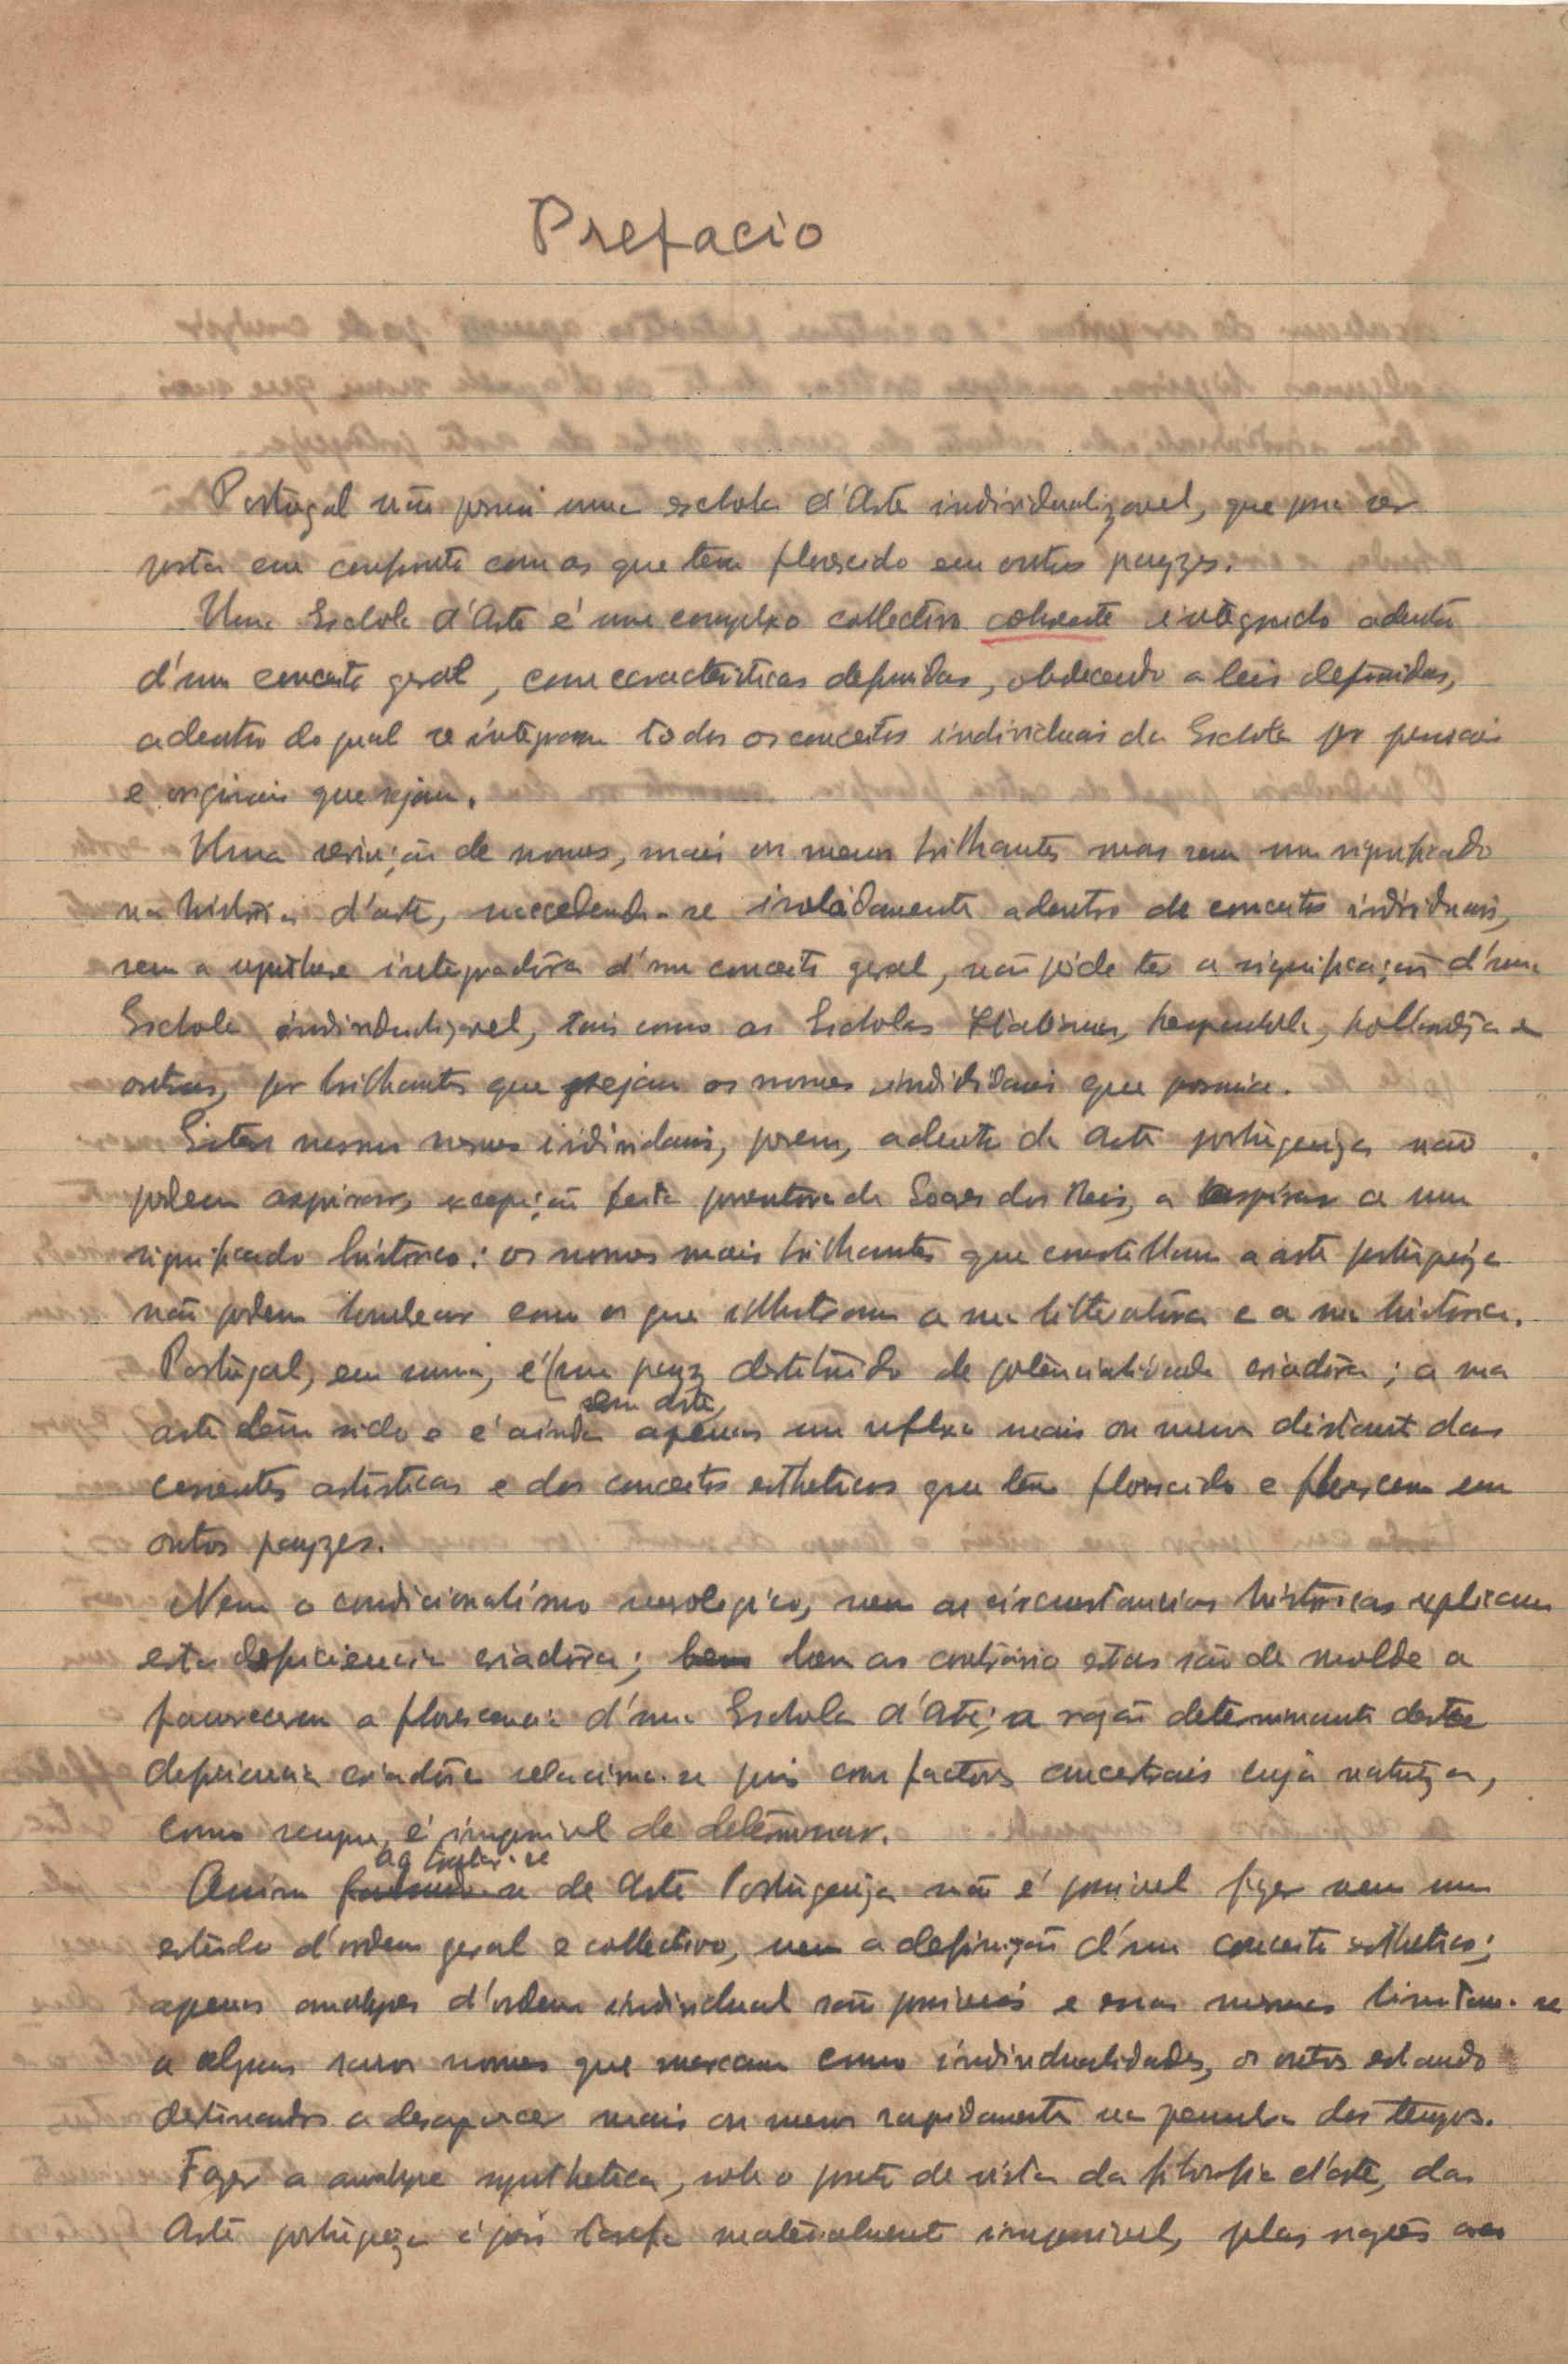 Prefacio
Portugal não possui uma eschola d'Arte individualizavel, que possa ser
posta em confronto com as que tem florescido em outros payzes.
Uma Eschola d'Arte é um complexo collectivo coherente integrado adentro
d'um conceito geral, com caracteristicas definidas, obedecendo a leis definidas,
adentro do qual se integram todos os conceitos individuais da Eschola por pessoais
e originais que sejam.
Uma seriação de nomes, mais ou menos brilhantes mas sem um significado
na historia d'arte, succedendo-se isoladamente adentro de conceitos individuais,
sem a synthese integradora d'um conceito geral, não póde ter a significação d'uma
Eschola individualizavel, tais como as Escholas Italiana, hespanhola, hollandeza e
outras, por brilhantes que sejam os nomes individuais que possua.
Estes mesmos nomes individuais, porem, adentro da Arte portugueza não
podem aspirar, excepção feita porventura de Soares dos Reis, a aspirar a um
significado historico: os nomes mais brilhantes que constellam a arte portugueza
não podem hombrear com os que illustram a sua litteratura e a sua historia.
Portugal, em suma, é um payz destituido de potencialidade criadora; a sua
em arte,
arte tem sido e é ainda apenas um reflexo mais ou menos distante das
correntes artisticas e dos conceitos estheticos que tem florescido e florescem em
outros payzes.
Nem o condicionalismo mesologico, nem as circunstancias historicas explicam
esta deficiencia criadora; bem bem ao contrário estas são de molde a
favorecerem a florescencia d'uma Eschola d'Arte; a razão determinante desta
deficiencia criadora relaciona-se pois com factores ancestrais cuja natureza,
como sempre, é impossivel de determinar.
ao tratar-se
Assim se de Arte Portugueza não é possivel fazer nem um
estudo d'ordem geral e collectivo, nem a definição d'um conceito esthetico;
apenas analyses d'ordem individual são possiveis e essas mesmas limitam-se
a alguns raros nomes que marcam como individualidades, os outros estando
destinados a desaparecer mais ou menos rapidamente na penumbra dos tempos.
Fazer a analyse synthetica, sob o ponto de vista da filosofia d'arte, da
Arte portugueza é pois tarefa materialmente impossivel, pelas razões